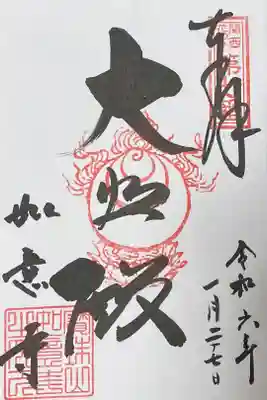 奉拝
関西
大悲殿
如意寺
令和六年
一月二十七日